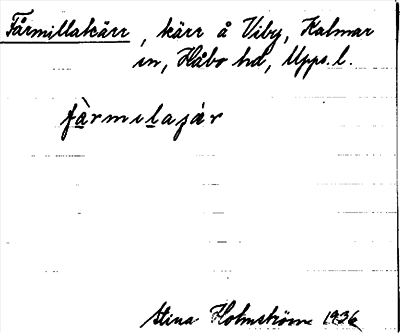 Fårmillakärr, kärr å Viby, Kalmar
sn, Håbo hd, Upps. l.
fàrmɩlaȷár
Stina Holmström 1936